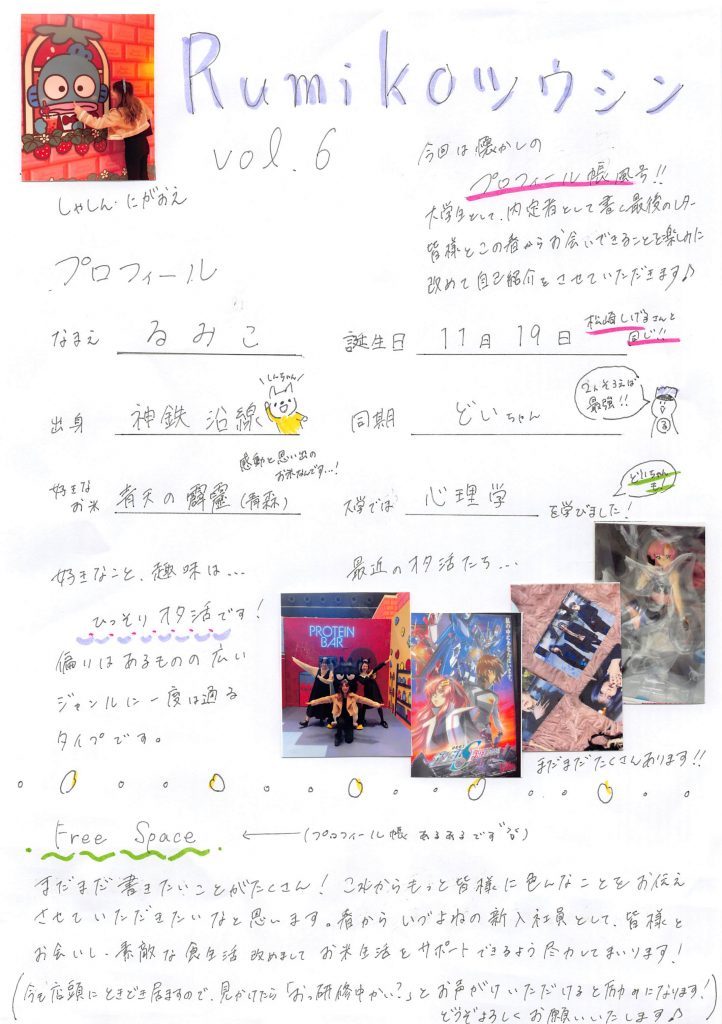 Rumikoツウシン
vol.6
今回は懐かしの
プロフィール帳風号!!
大学生として、内定者として書く最後のレター
皆様とこの春からお会いできることを楽しみに
改めて自己紹介をさせていただきます♪
しゃしん・にがおえ
プロフィール
なまえ るみこ
誕生日 11月19日
松崎しげるさんと
同じ!!
出身 神鉄沿線
しんちゃん
同期 どいちゃん
2人そろえば
最強!!
る
好きな
お米 青天の霹靂(青森)
感動と思い出の
お米なんです…!
大学では 心理学 を学びました!
どいちゃん
も
好きなこと、趣味は…
ひっそりオタ活です!
偏りはあるものの広い
ジャンルに一度は通る
タイプです。
最近のオタ活たち…
PROTEIN
BAR
まだまだたくさんあります!!
Free Space
(プロフィール帳あるあるです)
まだまだ書きたいことがたくさん! これからもっと皆様に色んなことをお伝え
させていただきたいなと思います。春からいづよねの新入社員として、皆様と
お会いし、素敵な食生活改めましてお米生活をサポートできるよう尽力してまいります!
(今も店頭にときどき居ますので、見かけたら「おっ研修中かい?」とお声がけいただけると励みになります!
どうぞよろしくお願いいたします♪)